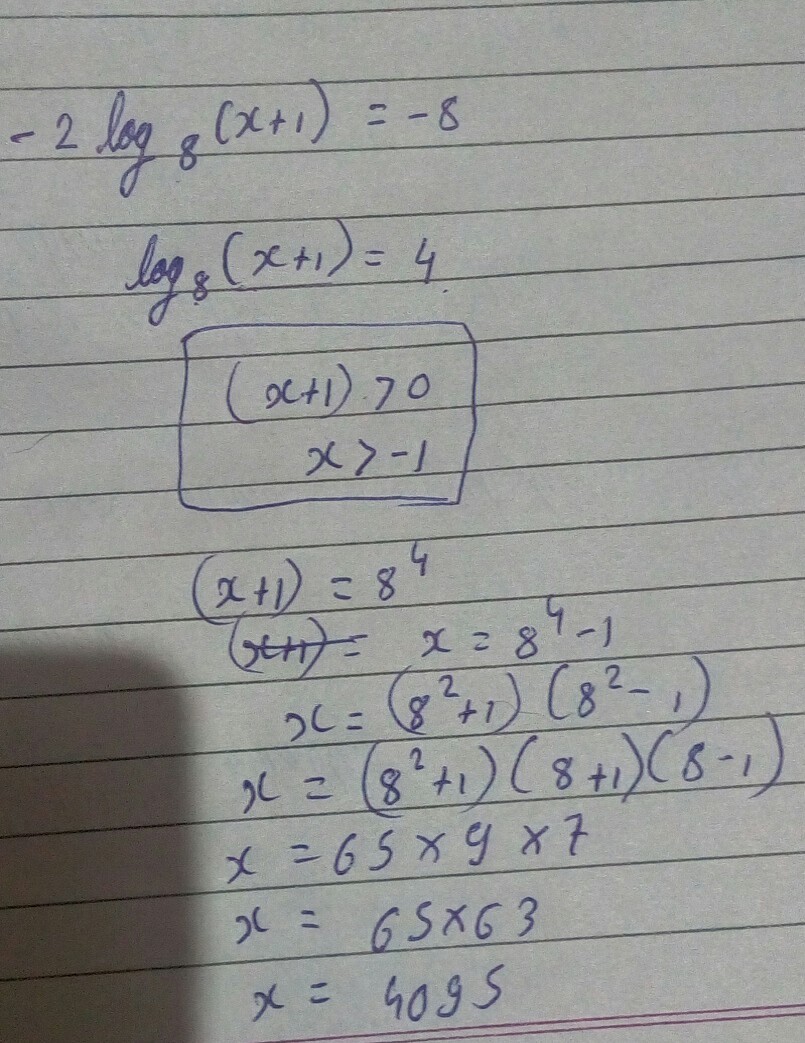 - 2 log₈(x+1) = -8
log₈(x+1) = 4
(x+1) > 0
x > -1
(x+1) = 8⁴
(x+1) = x = 8⁴-1
x = (8²+1) (8²-1)
x = (8²+1) (8+1) (8-1)
x = 65 × 9 × 7
x = 65×63
x = 4095